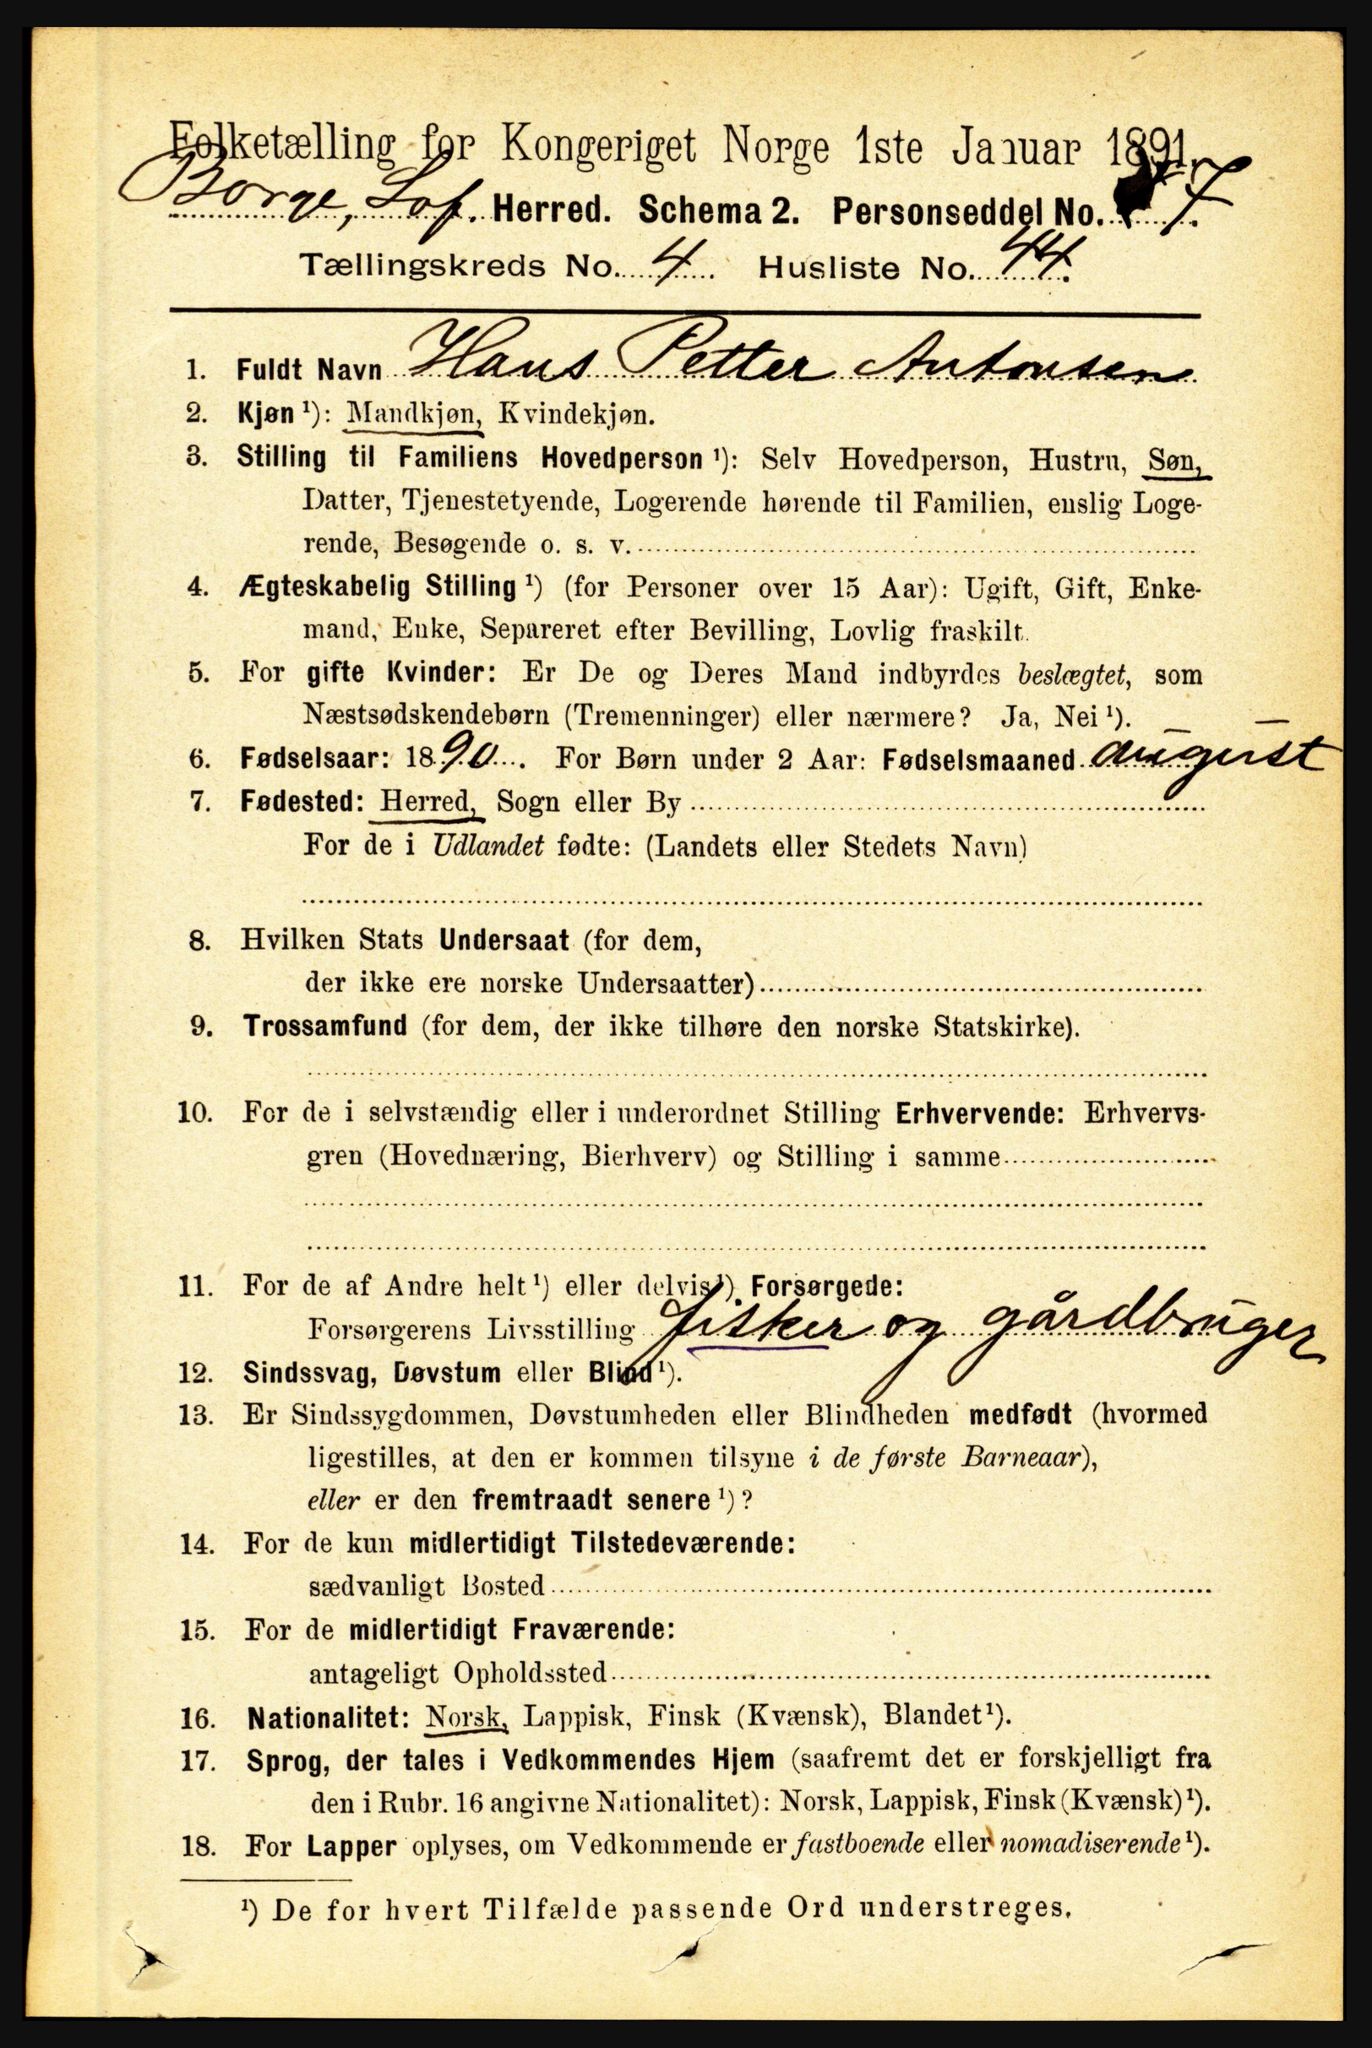 Folketælling for Kongeriget Norge 1ste Januar 1891.
Borge, Lof. Herred. Schema 2. Personseddel No. 7.
Tællingskreds No. 4. Husliste No. 44.
1. Fuldt Navn Hans Petter Antonsen
2. Kjøn ¹): Mandkjøn, Kvindekjøn.
3. Stilling til Familiens Hovedperson ¹): Selv Hovedperson, Hustru, Søn,
Datter, Tjenestetyende, Logerende hørende til Familien, enslig Loge-
rende, Besøgende o. s. v.
4. Ægteskabelig Stilling ¹) (for Personer over 15 Aar): Ugift, Gift, Enke-
mand, Enke, Separeret efter Bevilling, Lovlig fraskilt.
5. For gifte Kvinder: Er De og Deres Mand indbyrdes beslægtet, som
Næstsødskendebørn (Tremenninger) eller nærmere? Ja, Nei ¹).
6. Fødselsaar: 1890. For Børn under 2 Aar: Fødselsmaaned august
7. Fødested: Herred, Sogn eller By
For de i Udlandet fødte: (Landets eller Stedets Navn)
8. Hvilken Stats Undersaat (for dem,
der ikke ere norske Undersaatter)
9. Trossamfund (for dem, der ikke tilhøre den norske Statskirke).
10. For de i selvstændig eller i underordnet Stilling Erhvervende: Erhvervs-
gren (Hovednæring, Bierhverv) og Stilling i samme
11. For de af Andre helt ¹) eller delvis ¹) Forsørgede:
Forsørgerens Livsstilling fisker og gårdbruger
12. Sindssvag, Døvstum eller Blind ¹).
13. Er Sindssygdommen, Døvstumheden eller Blindheden medfødt (hvormed
ligestilles, at den er kommen tilsyne i de første Barneaar),
eller er den fremtraadt senere ¹)?
14. For de kun midlertidigt Tilstedeværende:
sædvanligt Bosted
15. For de midlertidigt Fraværende:
antageligt Opholdssted
16. Nationalitet: Norsk, Lappisk, Finsk (Kvænsk), Blandet ¹).
17. Sprog, der tales i Vedkommendes Hjem (saafremt det er forskjelligt fra
den i Rubr. 16 angivne Nationalitet): Norsk, Lappisk, Finsk (Kvænsk) ¹).
18. For Lapper oplyses, om Vedkommende er fastboende eller nomadiserende ¹).
¹) De for hvert Tilfælde passende Ord understreges.